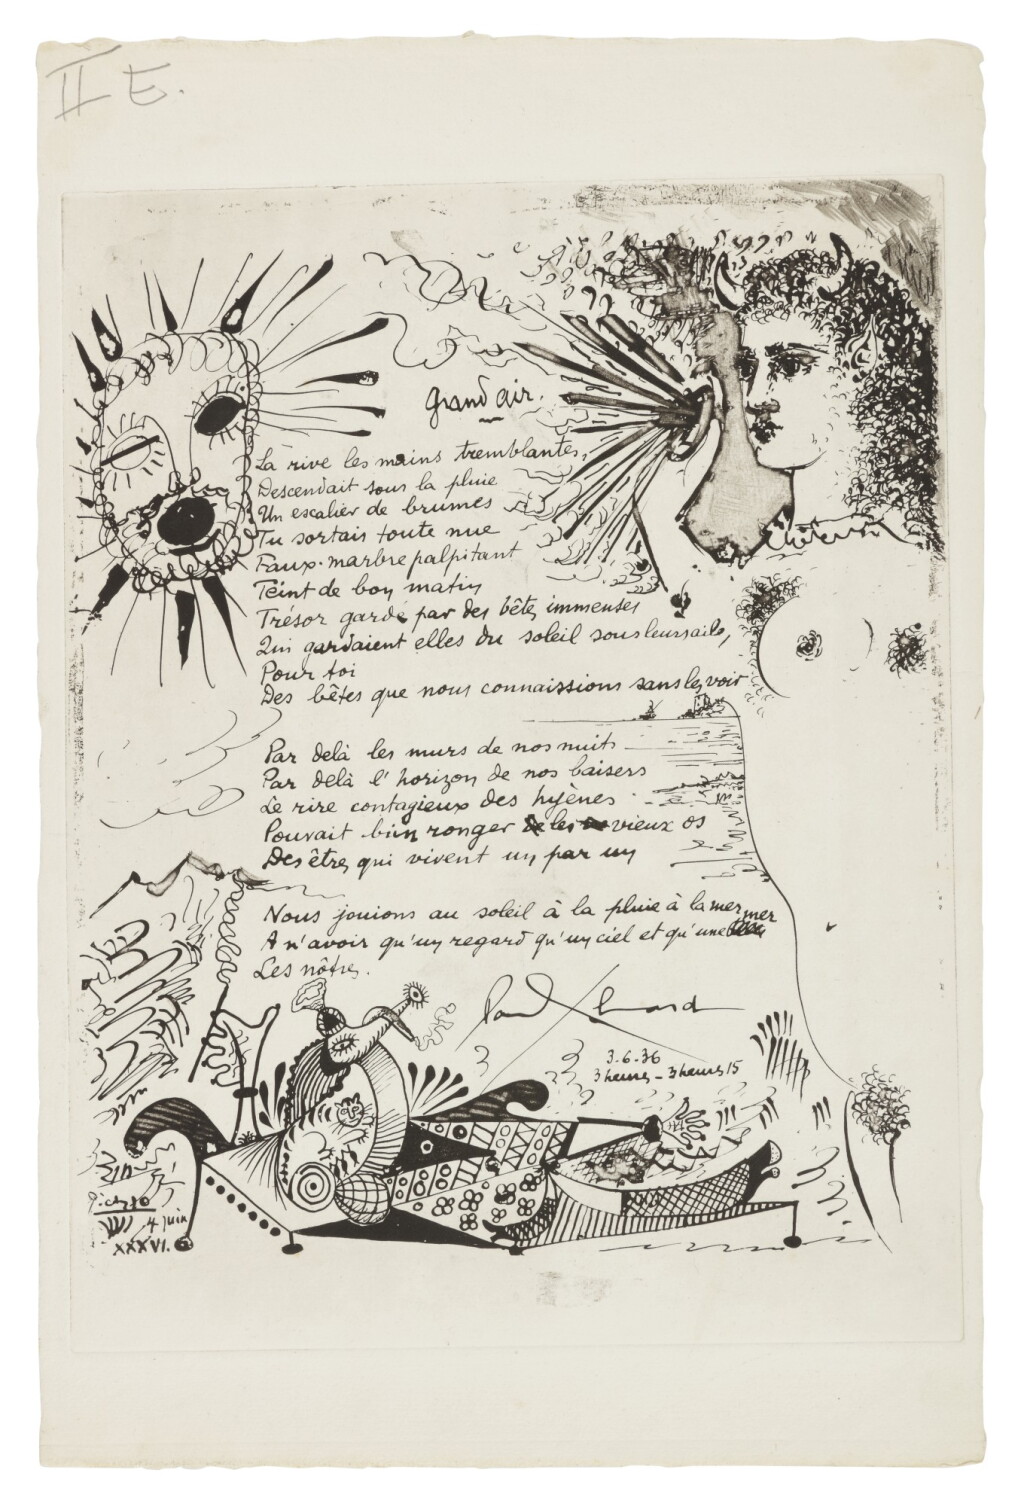 II E.
Grand air.
La rive les mains tremblantes,
Descendait sous la pluie
Un escalier de brumes
Tu sortais toute nue
Faux marbre palpitant
Teint de bon matin
Trésor gardé par des bêtes immenses
Qui gardaient elles du soleil sous leurs ailes,
Pour toi
Des bêtes que nous connaissions sans les voir
Par delà les murs de nos nuits
Par delà l'horizon de nos baisers
Le rire contagieux des hyènes
Pouvait bien ronger les vieux os
Des êtres qui vivent un par un
Nous jouions au soleil à la pluie à la mer mer
A n'avoir qu'un regard qu'un ciel et qu'une
Les nôtres.
Paul Eluard
3-6-36
3 heures - 3 heures 15
Picasso
4 juin
XXXVI.